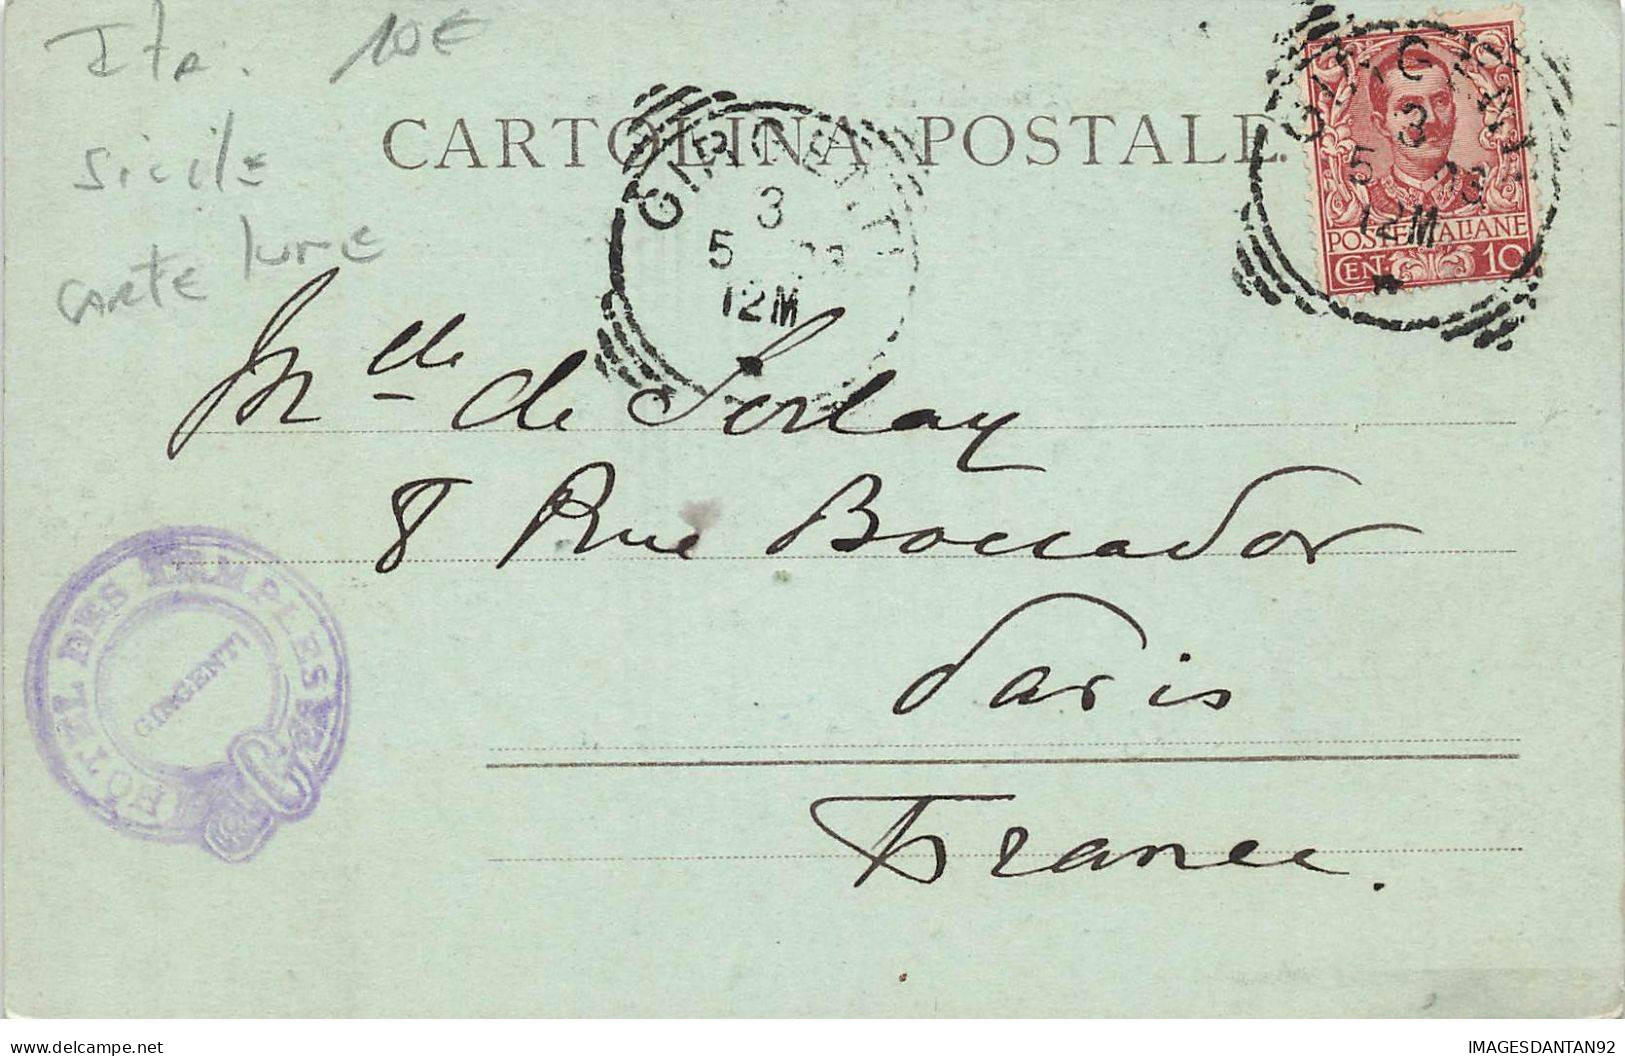 Ita. 10€
Sicile
CARTE lune
CARTOLINA POSTALE.
GIRGENTI
3
5
12M
GIRGENTI
3
5 03
12M
POSTE ITALIANE
CEN. 10
Mlle de Sorlay
8 Rue Boccador
Paris
France.
HOTEL DES TEMPLES
GIRGENTI
IMAGESDANTAN92